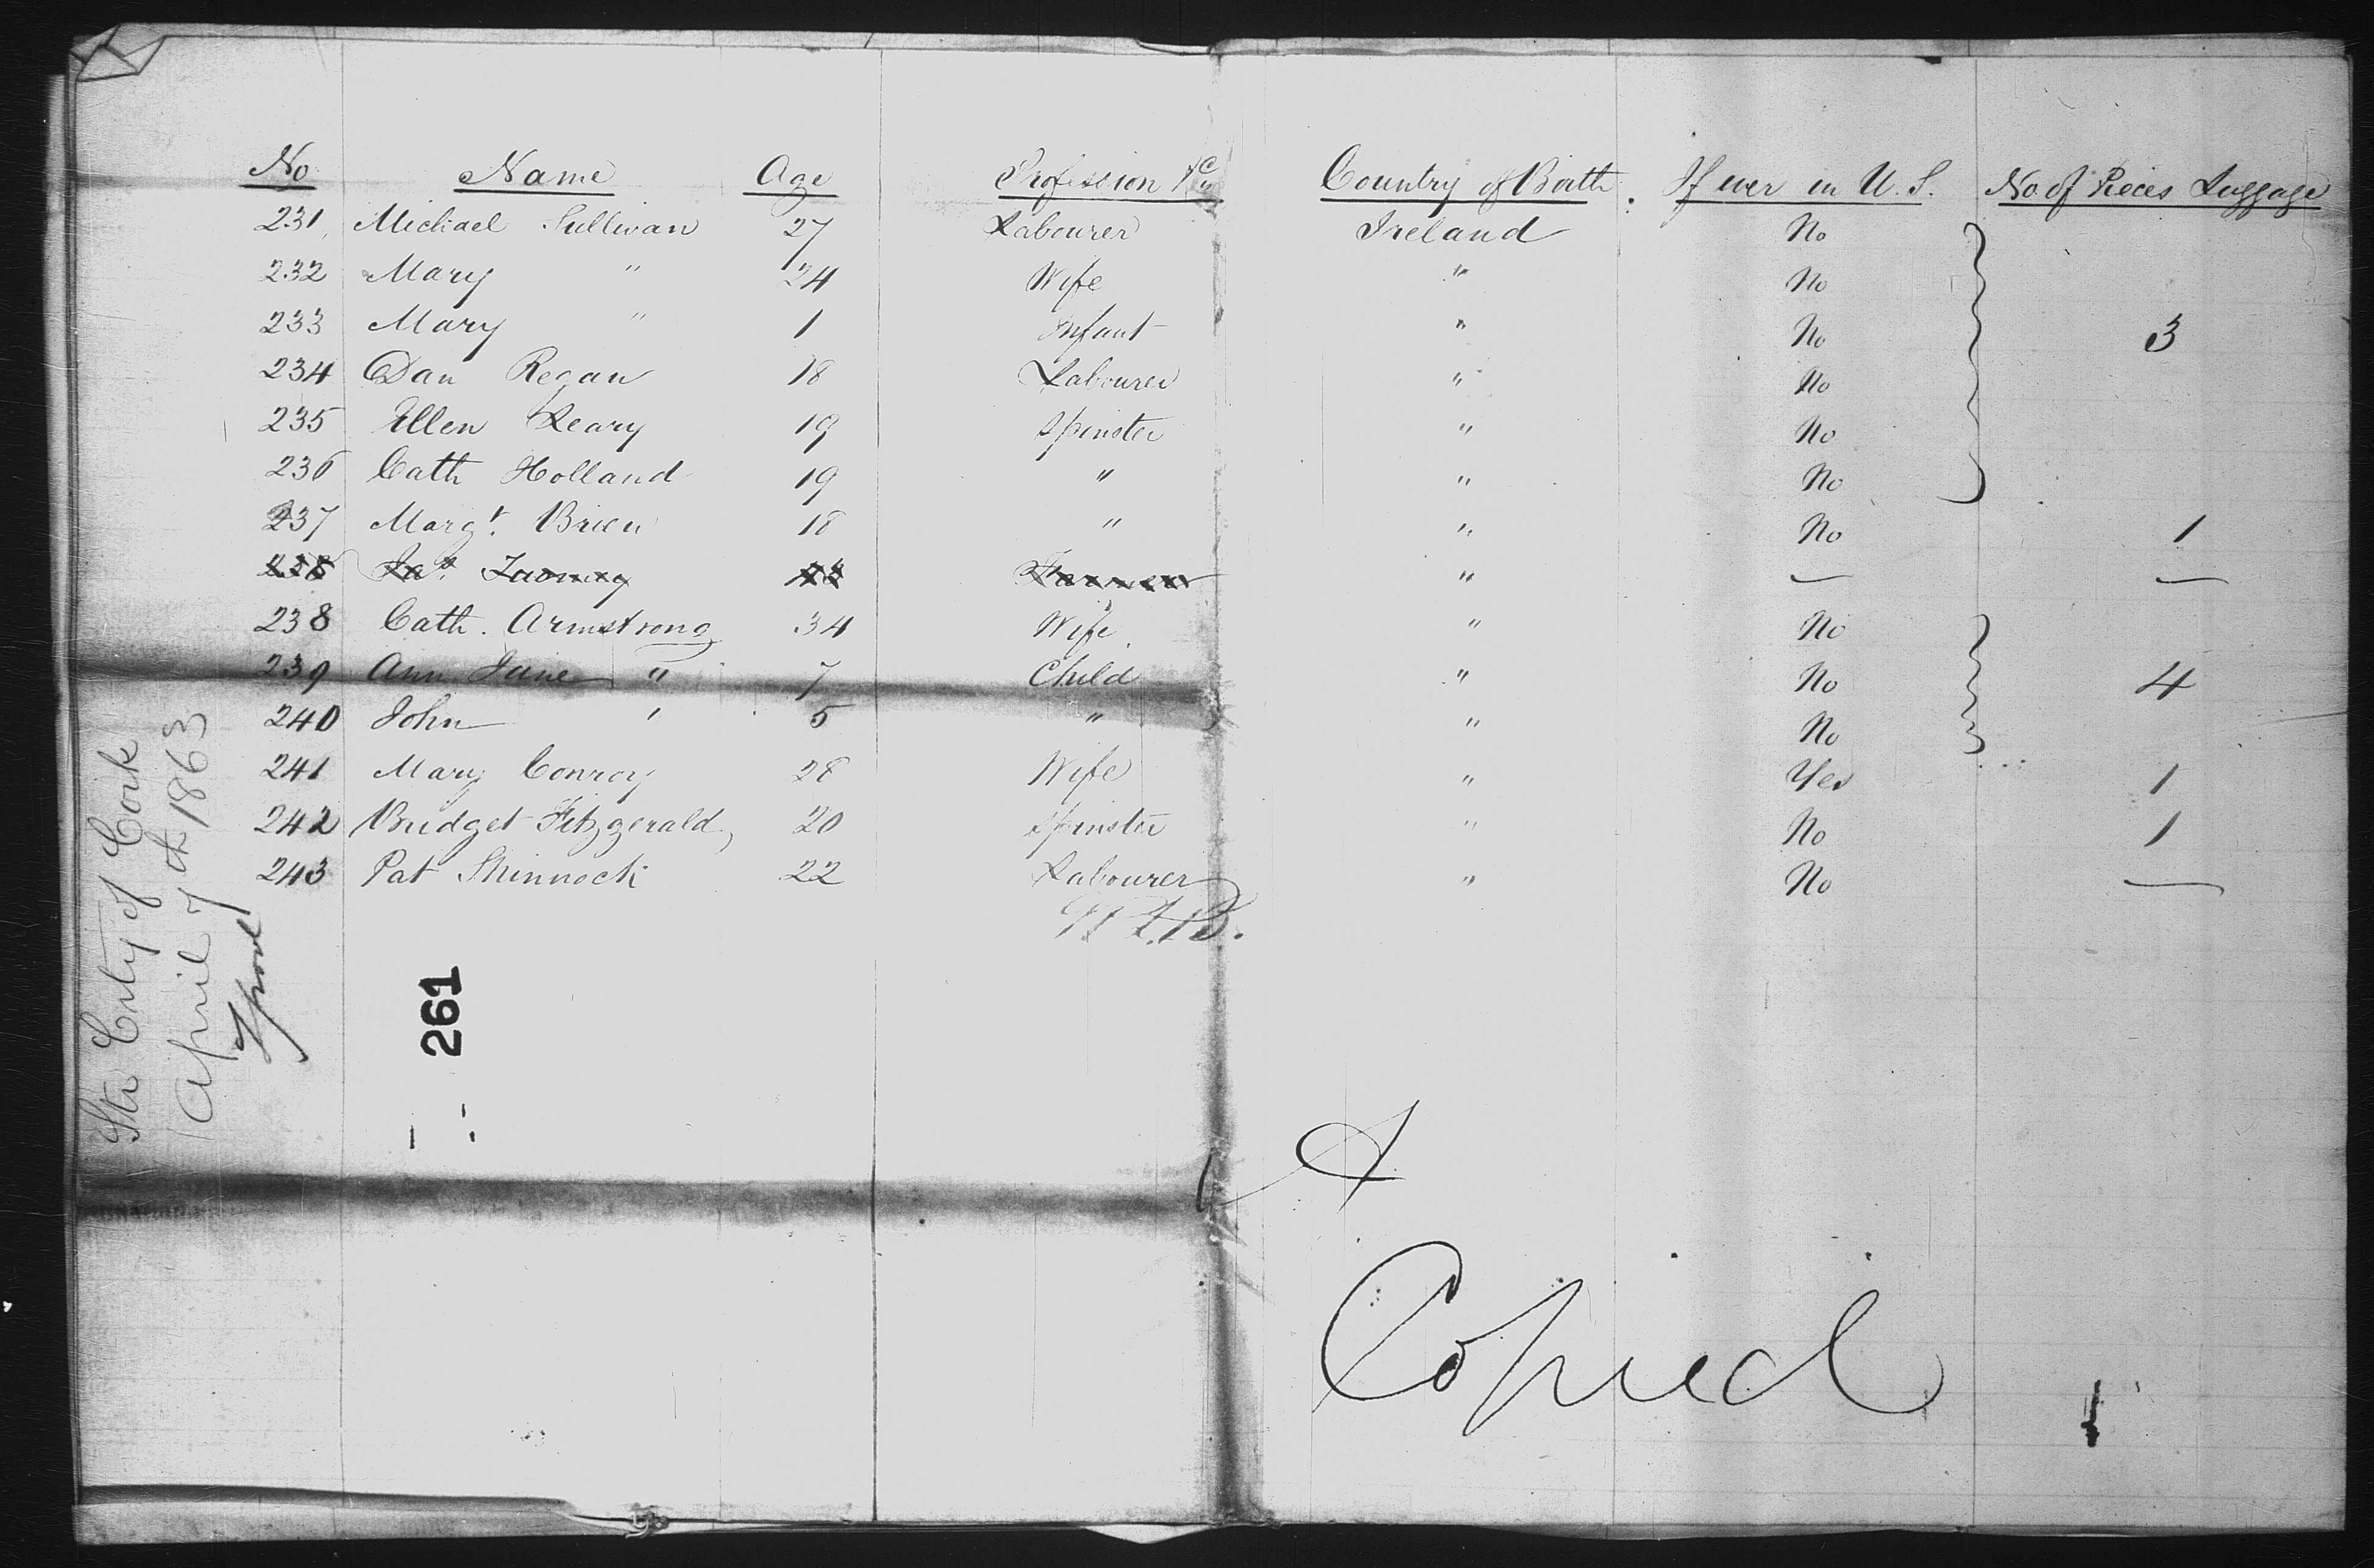 No Name Age Profession &c Country of Birth If ever in U.S. No of Pieces Luggage
231 Michael Sullivan 27 Labourer Ireland No
232 Mary " 24 Wife " No
233 Mary " 1 Infant " No 3
234 Dan Regan 18 Labourer " No
235 Ellen Leary 19 Spinster " No
236 Cath Holland 19 " " No
237 Margt. Brien 18 " " No 1
238 Jas. 23 Farmer " — —
238 Cath. Armstrong 34 Wife " No
239 Ann Jane " 7 Child " No 4
240 John " 5 " " No
241 Mary Conroy 28 Wife " Yes 1
242 Bridget Fitzgerald 20 Spinster " No 1
243 Pat Shinnock 22 Labourer " No —
Str City of Cork
April 7th 1863
Lpool
261
Copied